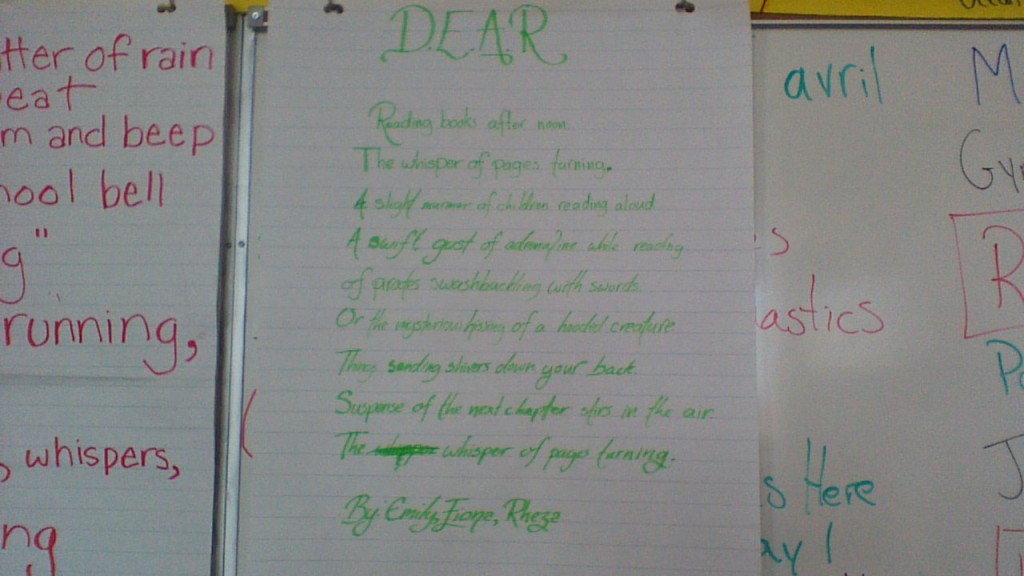 tter of rain
eat
m and beep
hool bell
g"
running,
, whispers,
ng
D.E.A.R
Reading books after noon
The whisper of pages turning.
A slight murmer of children reading aloud
A swift gust of adrenaline while reading
of pirates swashbuckling with swords.
Or the mysterious hissing of a hooded creature
Things sending shivers down your back.
Suspense of the next chapter stirs in the air.
The whisper of pages turning.
By: Emily, Fione, Rheza
avril
s
astics
s Here
ay!
M
Gyn
R
Po
J